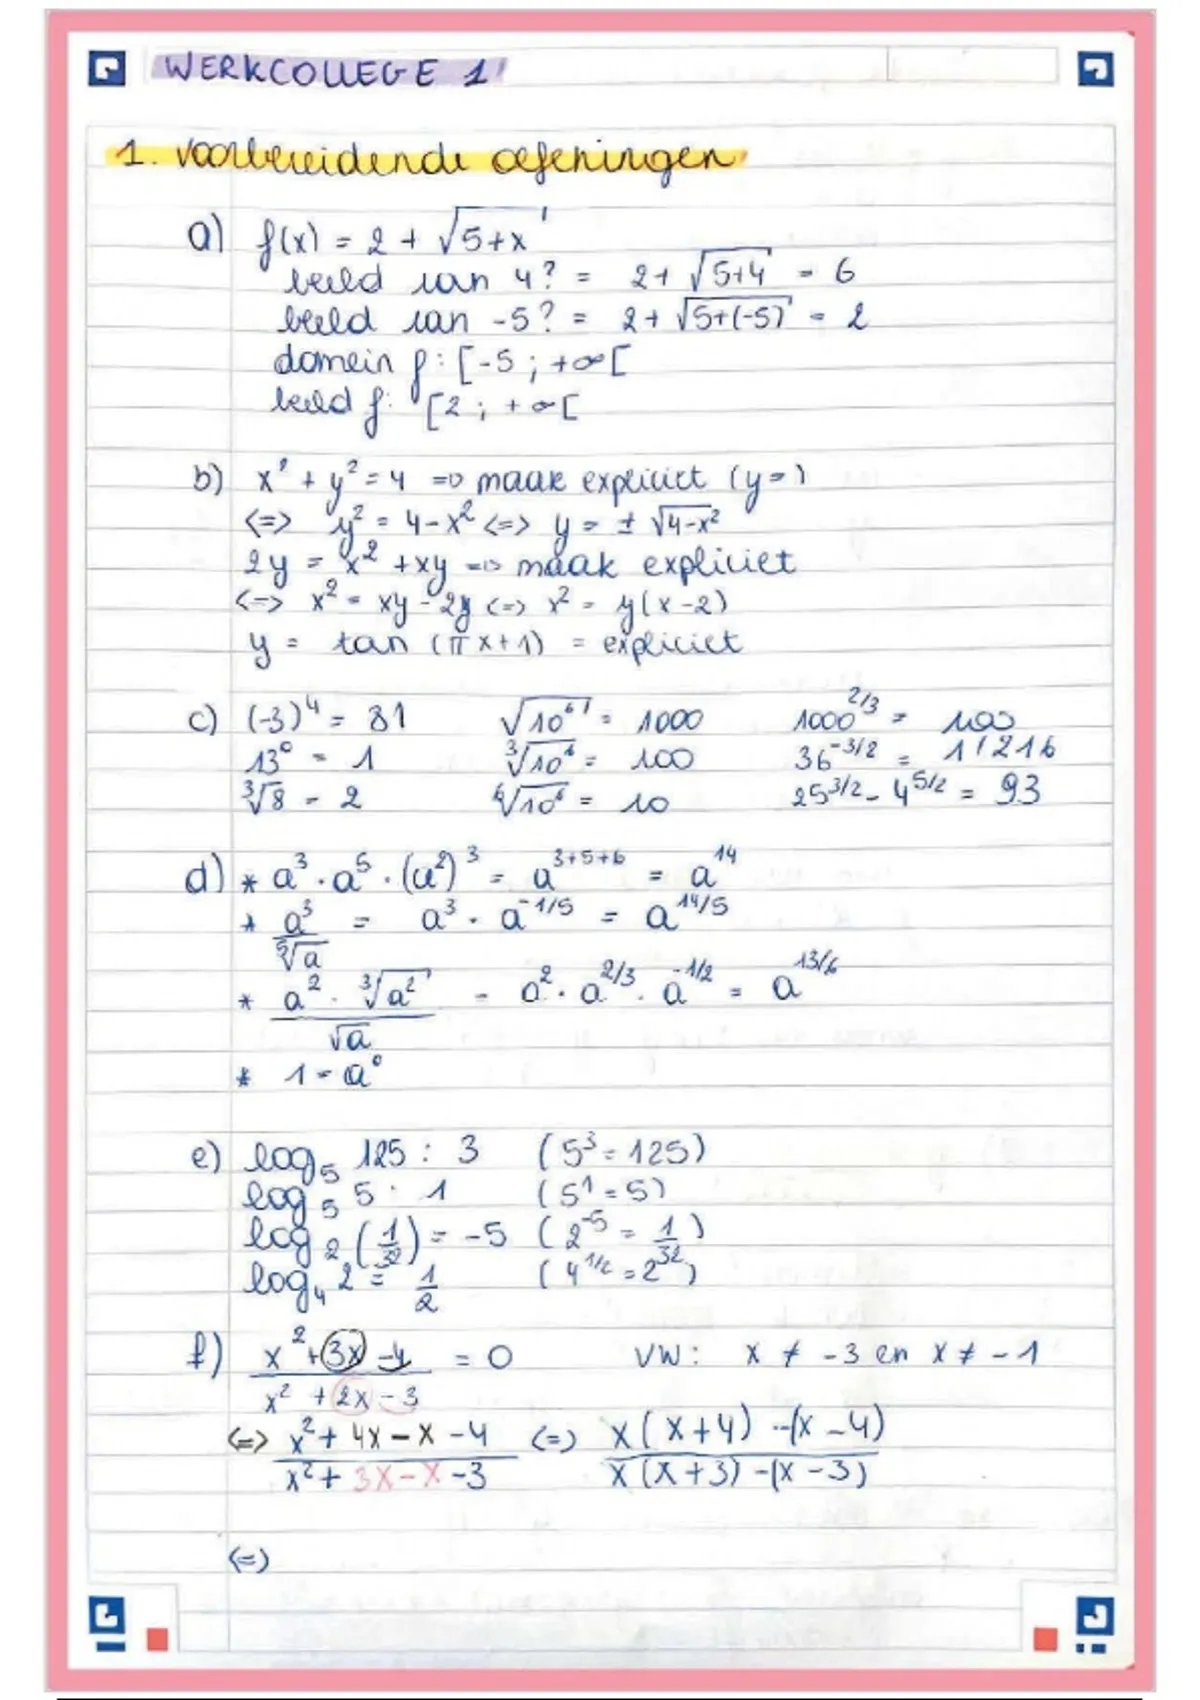 WERKCOLLEGE 1
1. voorbereidende oefeningen
a) f(x) = 2 + √(5+x)
beeld van 4? = 2 + √(5+4) = 6
beeld van -5? = 2 + √(5+(-5)) = 2
domein f: [-5 ; +∞[
beeld f: [2 ; +∞[
b) x² + y² = 4 => maak expliciet (y=)
<=> y² = 4-x² <=> y = ± √(4-x²)
2y = x² + xy => maak expliciet
<=> x² = xy - 2y <=> x² = y(x-2)
y = tan (πx+1) = expliciet
c) (-3)⁴ = 81 √(10⁶) = 1000 1000^(2/3) = 100
13⁰ = 1 ³√(10⁶) = 100 36^(-3/2) = 1/216
³√8 = 2 ⁶√(10⁶) = 10 25^(3/2) - 4^(5/2) = 93
d) * a³ . a⁵ . (a²)³ = a^(3+5+6) = a^14
* a³ / ⁵√a = a³ . a^(-1/5) = a^(14/5)
* a² . ³√(a²) / √a = a² . a^(2/3) . a^(-1/2) = a^(13/6)
* 1 = a⁰
e) log₅ 125 : 3 (5³ = 125)
log₅ 5 : 1 (5¹ = 5)
log₂ (1/32) = -5 (2^(-5) = 1/32)
log₄ 2 = 1/2 (4^(1/2) = 2)
f) (x² + 3x - 4) / (x² + 2x - 3) = 0 VW: x ≠ -3 en x ≠ -1
<=> (x² + 4x - x - 4) / (x² + 3x - x - 3) <=> (x(x+4) -(x-4)) / (x(x+3) -(x-3))
<=>